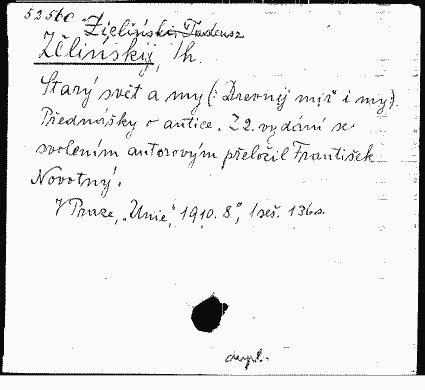 52560
Zieliński, Tadeusz
Zělinśkij, Th.
Starý svět a my (: Drevnij mir i my :).
Přednášky o antice. Z 2. vydání se
svolením autorovým přeložil František
Novotný.
V Praze, „Unie", 1910. 8°, 1 seš. 136 s.
dupl.